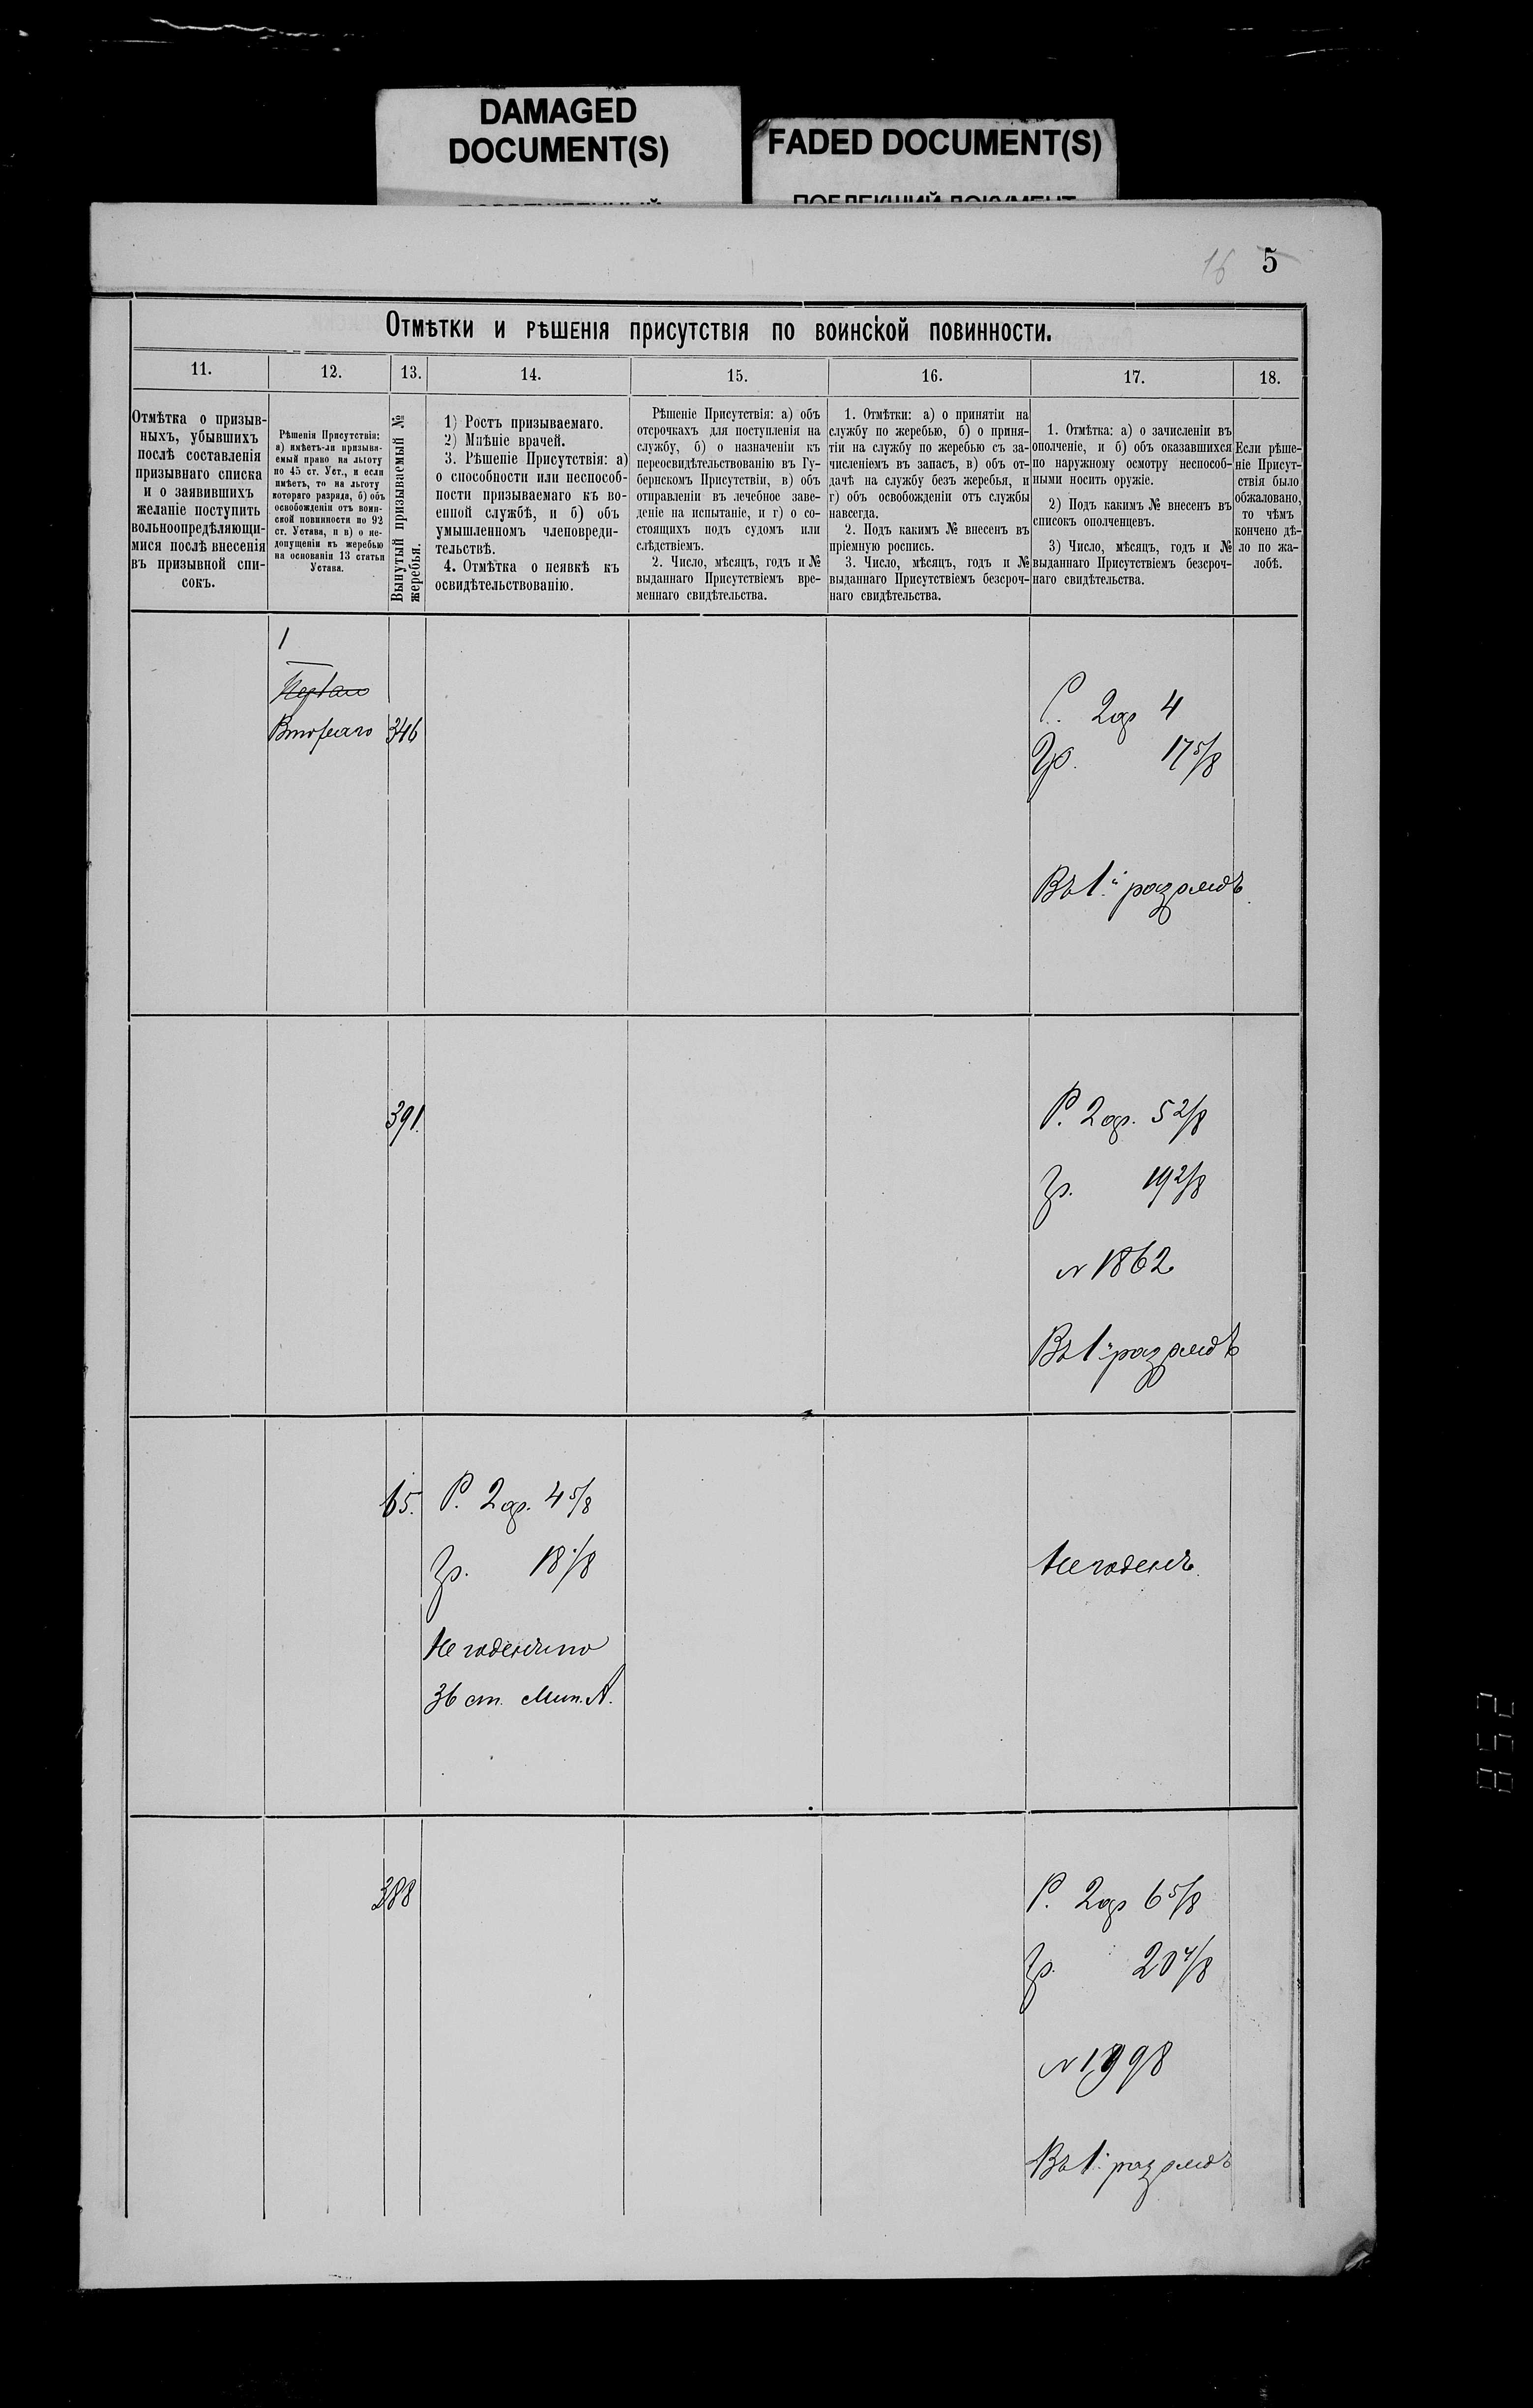 DAMAGED
DOCUMENT(S)
FADED DOCUMENT(S)
ПОБЛЕКШИЙ ДОКУМЕНТ
16 5
Отмѣтки и рѣшенія присутствія по воинской повинности.
11. 12. 13. 14. 15. 16. 17. 18.
Отмѣтка о призыв-
ныхъ, убывшихъ
послѣ составленія
призывнаго списка
и о заявившихъ
желаніе поступить
вольноопредѣляющи-
мися послѣ внесенія
въ призывной спи-
сокъ.
Рѣшенія Присутствія:
а) имѣетъ-ли призыва-
емый право на льготу
по 45 ст. Уст., и если
имѣетъ, то на льготу
котораго разряда, б) объ
освобожденіи отъ воин-
ской повинности по 92
ст. Устава, и в) о не-
допущеніи къ жеребью
на основаніи 13 статьи
Устава.
Вынутый призываемый №
жеребья.
1) Ростъ призываемаго.
2) Мнѣніе врачей.
3. Рѣшеніе Присутствія: а)
о способности или неспособ-
ности призываемаго къ во-
енной службѣ, и б) объ
умышленномъ членовреди-
тельствѣ.
4. Отмѣтка о неявкѣ къ
освидѣтельствованію.
Рѣшеніе Присутствія: а) объ
отсрочкахъ для поступленія на
службу, б) о назначеніи къ
переосвидѣтельствованію въ Гу-
бернскомъ Присутствіи, в) объ
отправленіи въ лечебное заве-
деніе на испытаніе, и г) о со-
стоящихъ подъ судомъ или
слѣдствіемъ.
2. Число, мѣсяцъ, годъ и №
выданнаго Присутствіемъ вре-
меннаго свидѣтельства.
1. Отмѣтки: а) о принятіи на
службу по жеребью, б) о приня-
тіи на службу по жеребью съ за-
численіемъ въ запасъ, в) объ от-
дачѣ на службу безъ жеребья, и
г) объ освобожденіи отъ службы
навсегда.
2. Подъ какимъ № внесенъ въ
пріемную роспись.
3. Число, мѣсяцъ, годъ и №
выданнаго Присутствіемъ безсроч-
наго свидѣтельства.
1. Отмѣтка: а) о зачисленіи въ
ополченіе, и б) объ оказавшихся
по наружному осмотру неспособ-
ными носить оружіе.
2) Подъ какимъ № внесенъ въ
списокъ ополченцевъ.
3) Число, мѣсяцъ, годъ и №
выданнаго Присутствіемъ безсроч-
наго свидѣтельства.
Если рѣше-
ніе Присут-
ствія было
обжаловано,
то чѣмъ
кончено дѣ-
ло по жа-
лобѣ.
1
Втораго 346
Р. 2 ар 4
Гр. 17 5/8
Въ 1й разрядъ.
391.
Р. 2 ар. 5 2/8
Гр. 19 2/8
N 1862
Въ 1й разрядъ
65. Р. 2 ар. 4 5/8
Гр. 18 1/8
Не годенъ по
36 ст. Лит. А.
Не годенъ.
388
Р. 2 ар 6 5/8
Гр. 20 4/8
N 1998
Въ 1й разрядъ
852